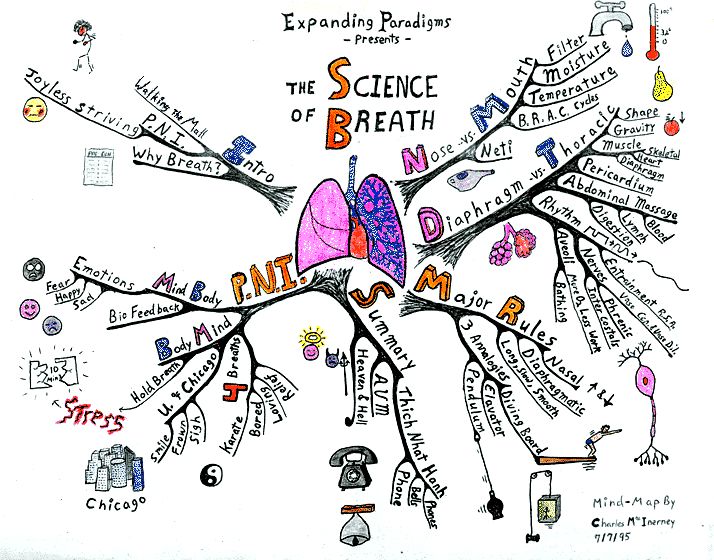 Expanding Paradigms
- Presents -
THE SCIENCE
OF BREATH
Intro
Walking the Mall
P.N.I.
Joyless Striving
Why Breath?
Nose -vs- Mouth
Filter
Moisture
Temperature
B.R.A.C. Cycles
Neti
Diaphragm -vs- Thoracic
Shape
Gravity
Muscle
Skeletal
Heart
Diaphragm
Pericardium
Abdominal Massage
Blood
Lymph
Digestion
Rhythm
Entrainment
R.S.A.
Nerves
Phrenic
Intercostals
Aveoli
More O₂ Less Work
Bathing
Major Rules
Nasal
Diaphragmatic
Long, Slow, Smooth
3 Annalogies
Diving Board
Elavator
Pendulum
Summary
Heaven & Hell
AUM
Thich Nhat Hanh
Phones
Bells
Phone
P.N.I.
Mind Body
Emotions
Fear
Happy
Sad
Bio Feedback
Body Mind
Hold Breath
10 min
Stress
U. of Chicago
Smile
Frown
Sigh
4 Breaths
Karate
Bored
Loving
Relief
Chicago
Mind-Map By
Charles McInerney
7/7/95